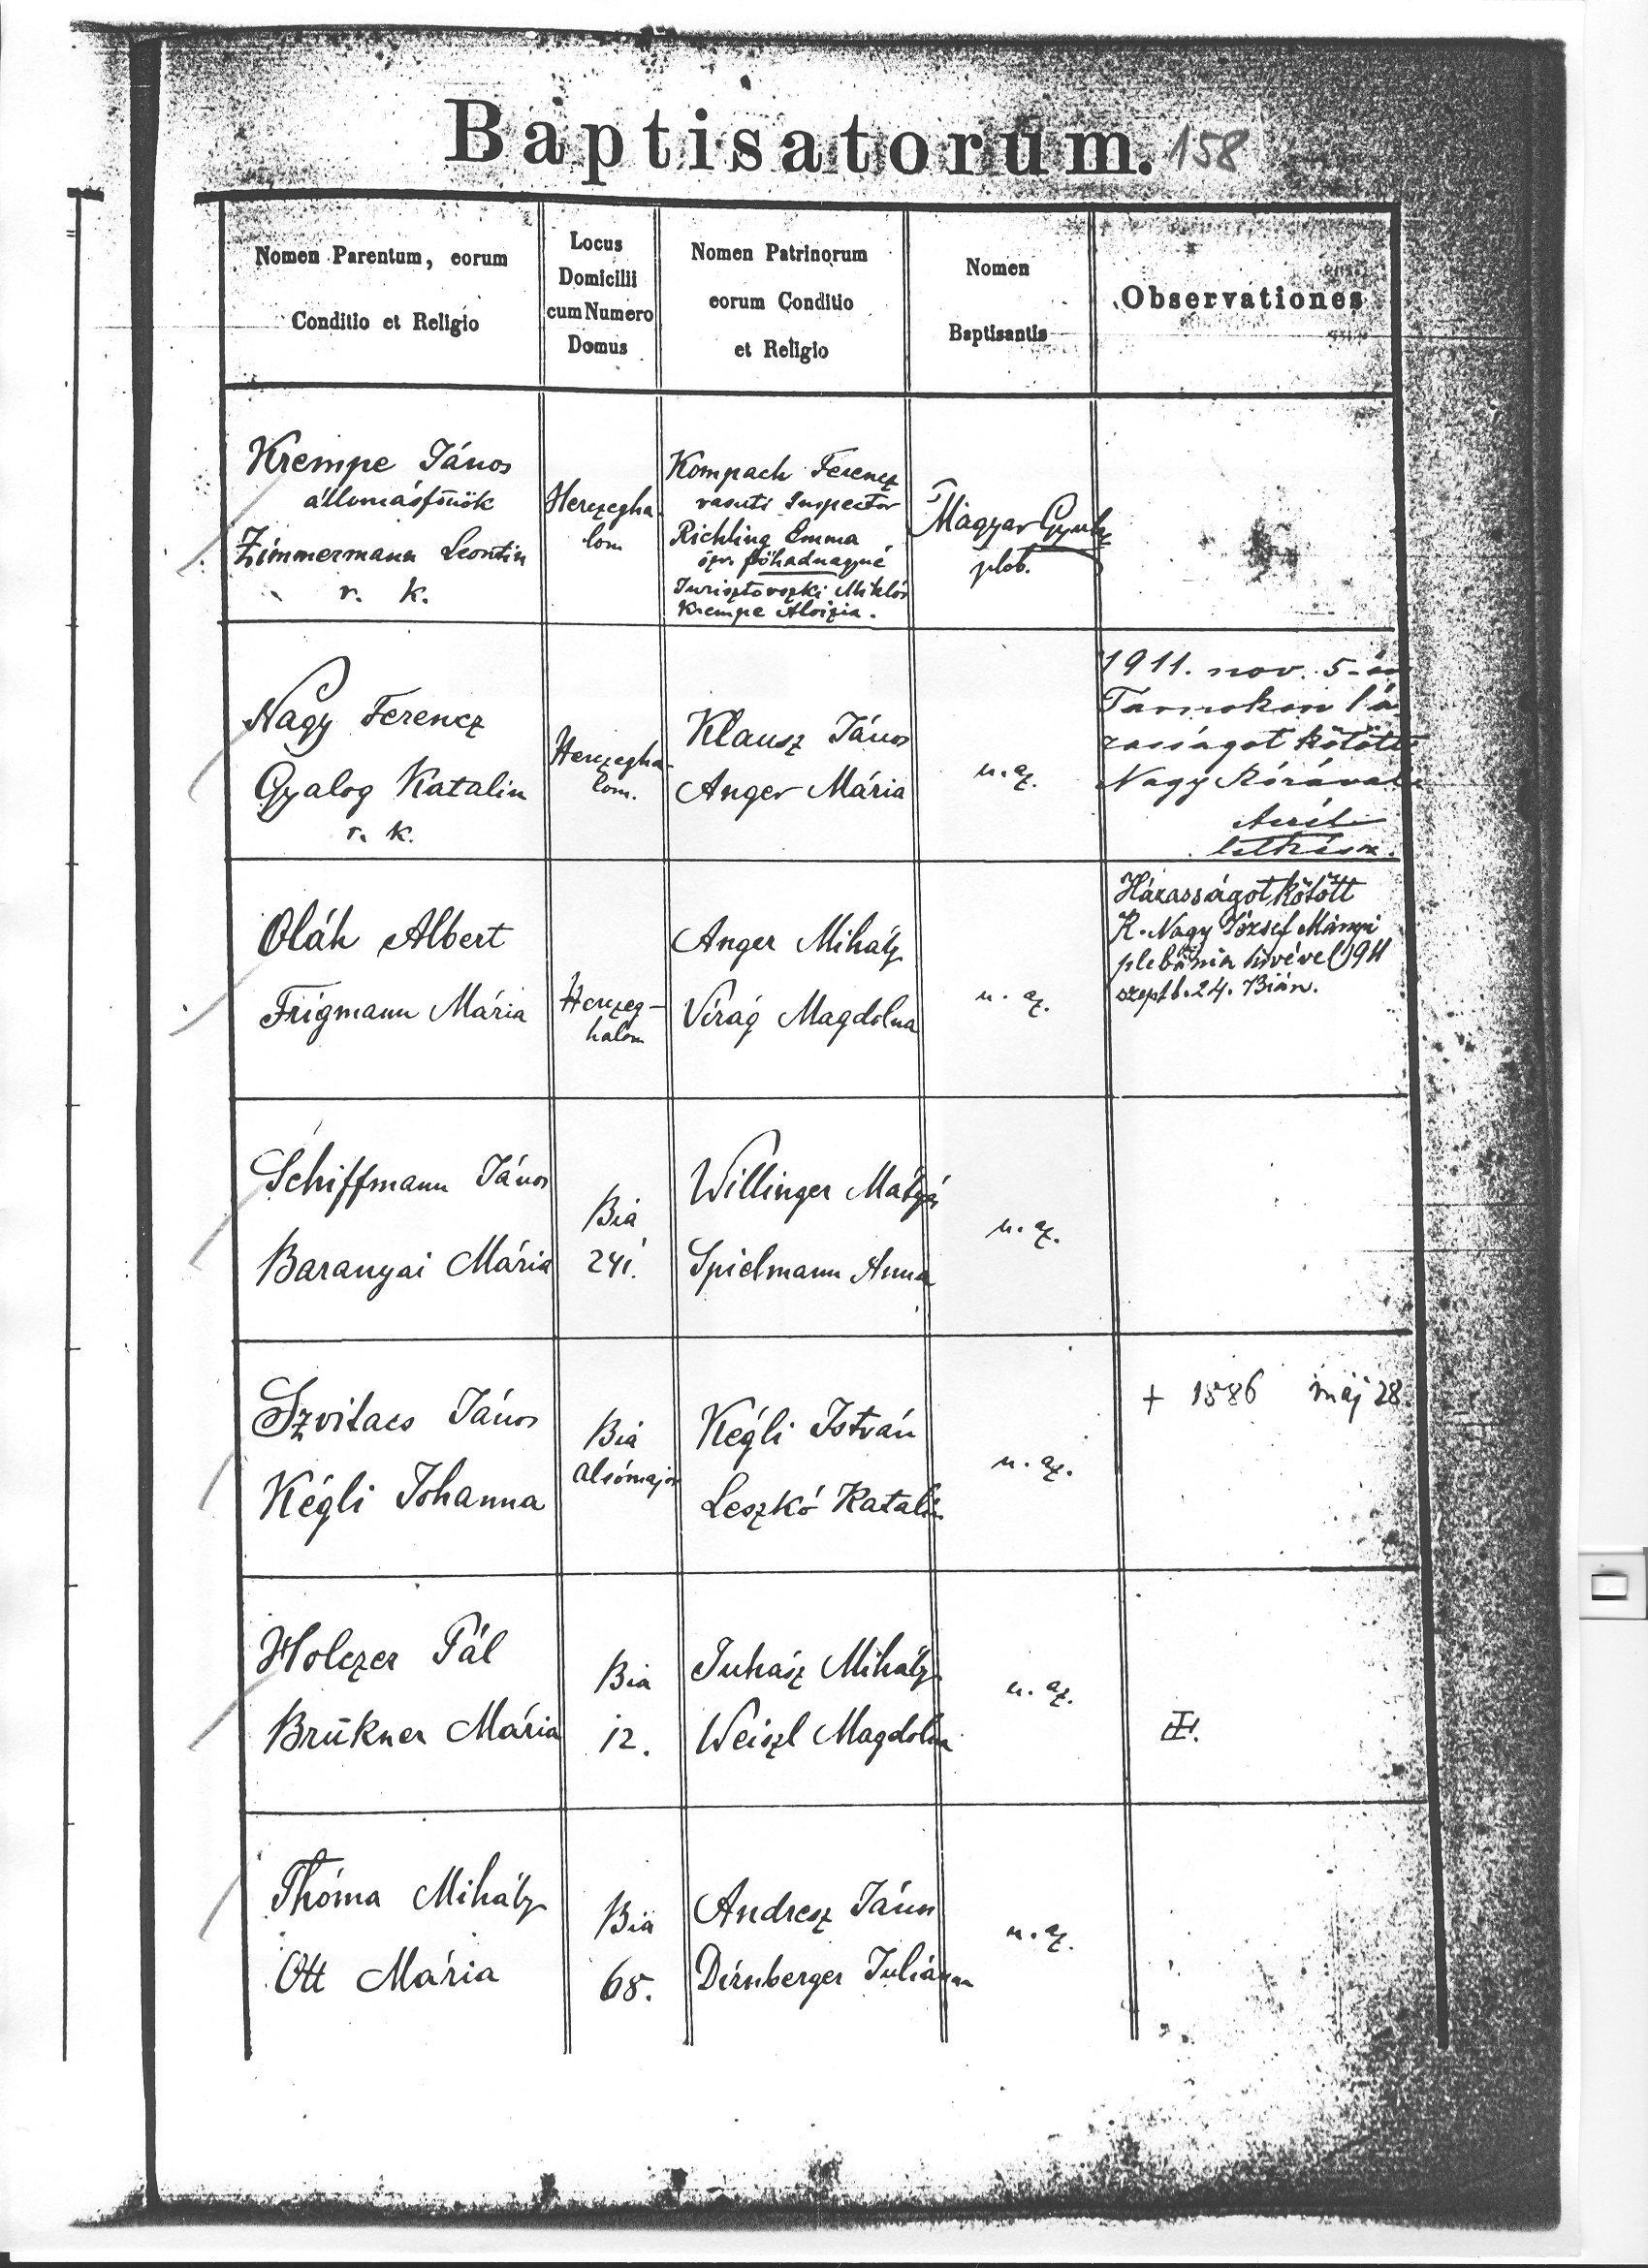 Baptisatorum. 158
Nomen Parentum, eorum
Conditio et Religio
Locus
Domicilii
cum Numero
Domus
Nomen Patrinorum
eorum Conditio
et Religio
Nomen
Baptisantis
Observationes
Krempe János
állomásfőnök
Zimmermann Leontin
r. k.
Herczegha
lom
Kompach Ferencz
vasuti Inspector
Richling Emma
özv. főhadnagyné
Miklós
Krempe Aloizia.
Magyar Gyula
pleb.
Nagy Ferencz
Gyalog Katalin
r. k.
Herczegha-
lom.
Klausz János
Anger Mária
u. az.
1911. nov. 5-én
Tarnokon há
zasságot kötött
Nagy
Oláh Albert
Frigmann Mária
Herczeg-
halom
Anger Mihály
Virág Magdolna
u. az.
Házasságot kötött
K. Nagy József Mányi
plebánia hivével 1911
szeptb. 24. Bián.
Schiffmann János
Baranyai Mária
Bia
241.
Willinger Mátyás
Spielmann Anna
u. az.
Szvitacs János
Kégli Johanna
Bia
alsómajor
Kégli István
Leszkó Katalin
u. az.
+ 1886 máj 28.
Holczer Pál
Brükner Mária
Bia
12.
Juhász Mihály
Weiszl Magdolna
u. az.
Thóma Mihály
Ott Mária
Bia
68.
Andresz János
Dirnberger Juliánna
u. az.